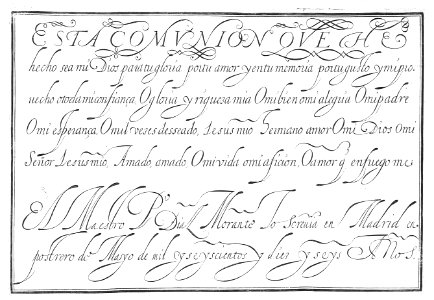 ESTA COMVNION QVE HE
hecho sea mi Dios para tu gloria por tu amor y en tu memoria por tu gusto y mi pro.
uecho o toda mi confiança. O gloria y riqueza mia O mi bien o mi alegria O mi padre
O mi esperança. O mil veses desseado, Iesus mio Hermano amor O mi Dios O mi
Señor Iesus mio, Amado, amado. O mi vida o mi aficion. O amor q̃ en fuego me
El Maestro P.º Diaz Morante Lo Screuia en Madrid en
postrero de Mayo de mil y seyscientos y diez y seys Años